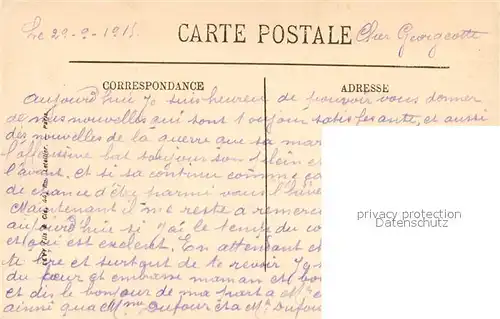 Le 29-9-1915.
CARTE POSTALE
Cher Georgeotte
CORRESPONDANCE
ADRESSE
Aujourd'hui Je suis heureu de pouvoir vous donner
de mes nouvelles qui sont toujour satisfesante, et aussi
des nouvelles de la guerre que sa mar
l'offensive bat toujour son plein e
l'avant. et si sa continue comme ça
de chance d'être parmi vous l'hive
Maintenant il me reste a remerci
aujourd'huie si j'ai le temps du co
et qui est exelent. En attendant
te lire et surtout de te revoir J
du cœur et embrasse maman et
et dis le bonjour de ma part a M
ainsi qua Mme Dufour et a Mr Dufour
privacy protection
Datenschutz